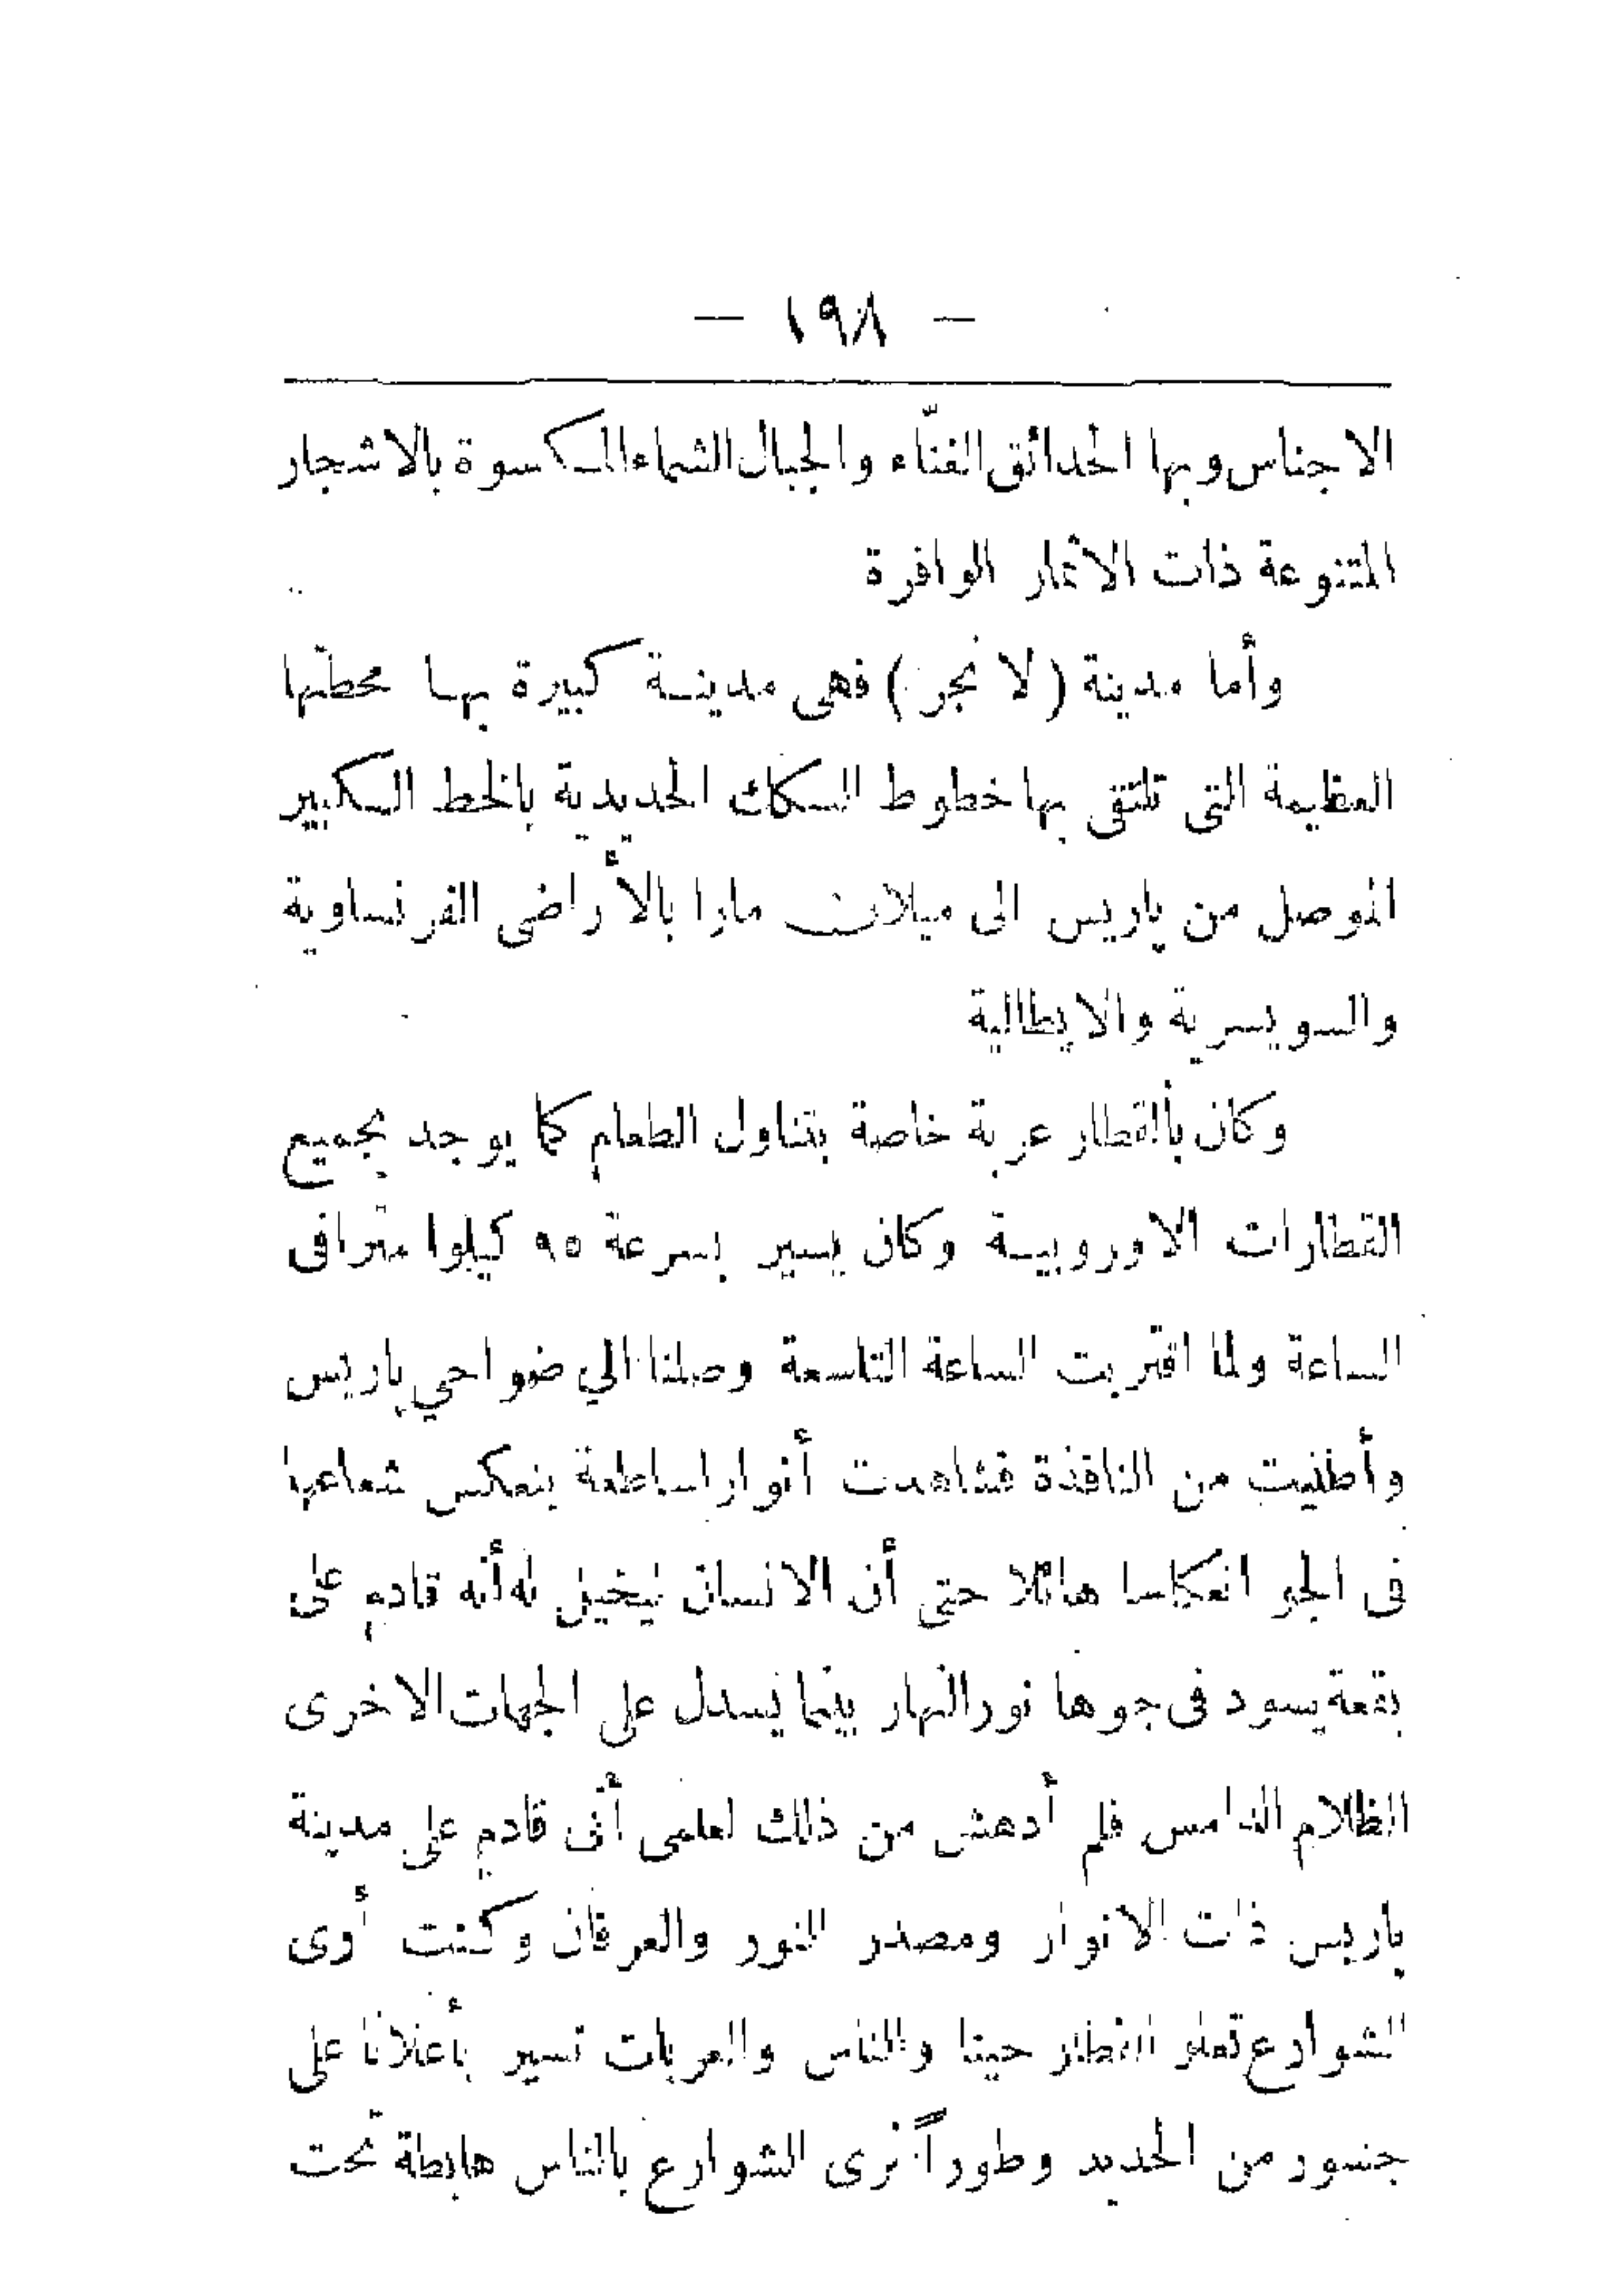 — ١٩٨ —
الاجناس وبها الحدائق الغنّاء والجبال الشماء المكسوة بالاشجار
المتنوعة ذات الأثمار الوافرة
وأما مدينة (لانجر) فهى مدينة كبيرة بها محطتها
العظيمة التى تلتقى بها خطوط السكك الحديدية بالخط الكبير
الموصل من باريس الى ميلان مارا بالأراضى الفرنساوية
والسويسرية والايطالية
وكان بالقطار عربة خاصة بتناول الطعام كما يوجد بجميع
القطارات الاوروبية وكان يسير بسرعة ٩٥ كيلوا مترا فى
الساعة ولما اقتربت الساعة التاسعة وصلنا الي ضواحي باريس
وأطليت من النافذة فشاهدت أنوارا ساطعة ينعكس شعاعها
فى الجو انعكاسا هائلا حتى أن الانسان ليخيل له أنه قادم على
بقعة يسود فى جوها نور النهار بينما يسدل على الجهات الاخرى
الظلام الدامس فلم أدهش من ذلك لعلمى أنى قادم على مدينة
باريس ذات الانوار ومصدر النور والعرفان وكنت أرى
الشوارع تعلو القطار حينا والناس والعربات تسير بأعلانا على
جسور من الحديد وطوراً نرى الشوارع بالناس هابطة تحت